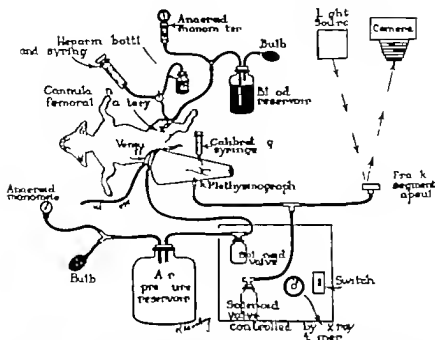 Anaeroid
manom ter
Light
Sourc
Camera
Heparin bottl
and syring
Bulb
Bl od
reservoir
Cannula
femoral
a tery
Venou
Calibrat g
syringe
Plethysmograph
Fra k
segment
apsul
Anaeroid
manomete
Bulb
A r
pre ure
reservoir
Sol noid
valve
Switch
Solenoid
valve
controlled by x ray
t mer